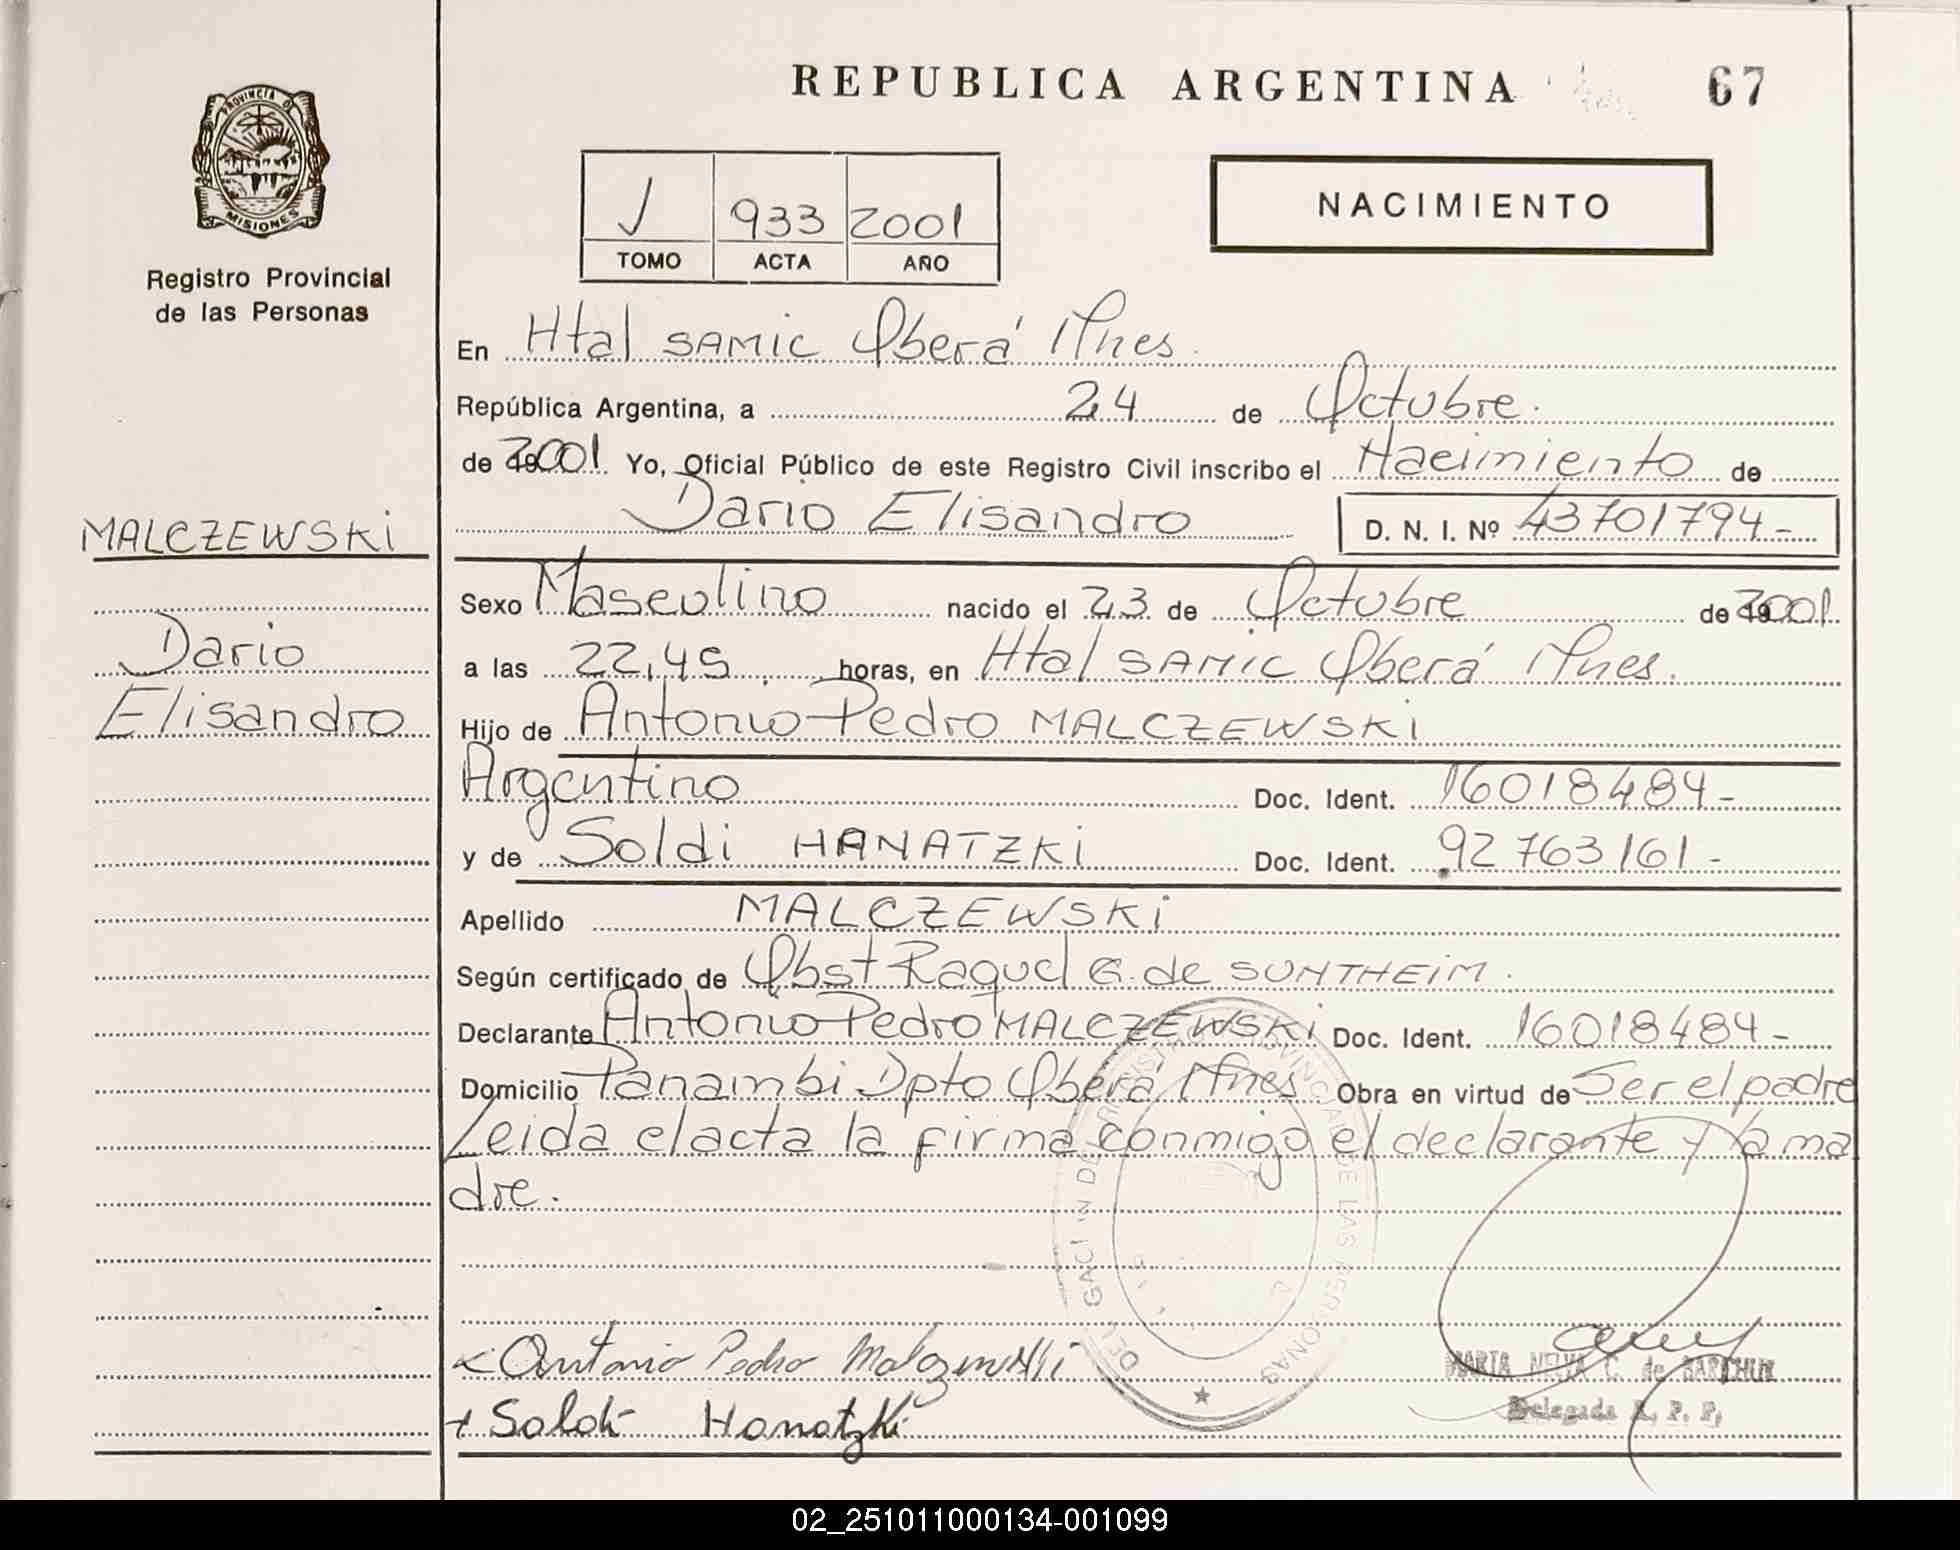 REPUBLICA ARGENTINA
67
PROVINCIA DE
MISIONES
Registro Provincial
de las Personas
933 2001
TOMO ACTA AÑO
NACIMIENTO
En Htal SAMIC Oberá Mnes.
República Argentina, a 24 de Octubre.
de 2001. Yo, Oficial Público de este Registro Civil inscribo el Nacimiento de
Dario Elisandro D. N. I. Nº 43701794-
MALCZEWSKI
Dario
Elisandro
Sexo Masculino nacido el 23 de Octubre de 2001.
a las 22,45 horas, en Htal SAMIC Oberá Mnes.
Hijo de Antonio Pedro MALCZEWSKI
Argentino Doc. Ident. 16018484-
y de Soldi HANATZKI Doc. Ident. 92763161-
Apellido MALCZEWSKI
Según certificado de Obst Raquel G. de SONTHEIM.
Declarante Antonio Pedro MALCZEWSKI Doc. Ident. 16018484-
Domicilio Panambi Dpto Oberá Mnes Obra en virtud de Ser el padre
Leida el acta la firma conmigo el declarante y la ma
dre.
Antonio Pedro Malczewski
Hanatzki
MARIA NELVA C. de
Delegada R. P. P.
02_251011000134-001099